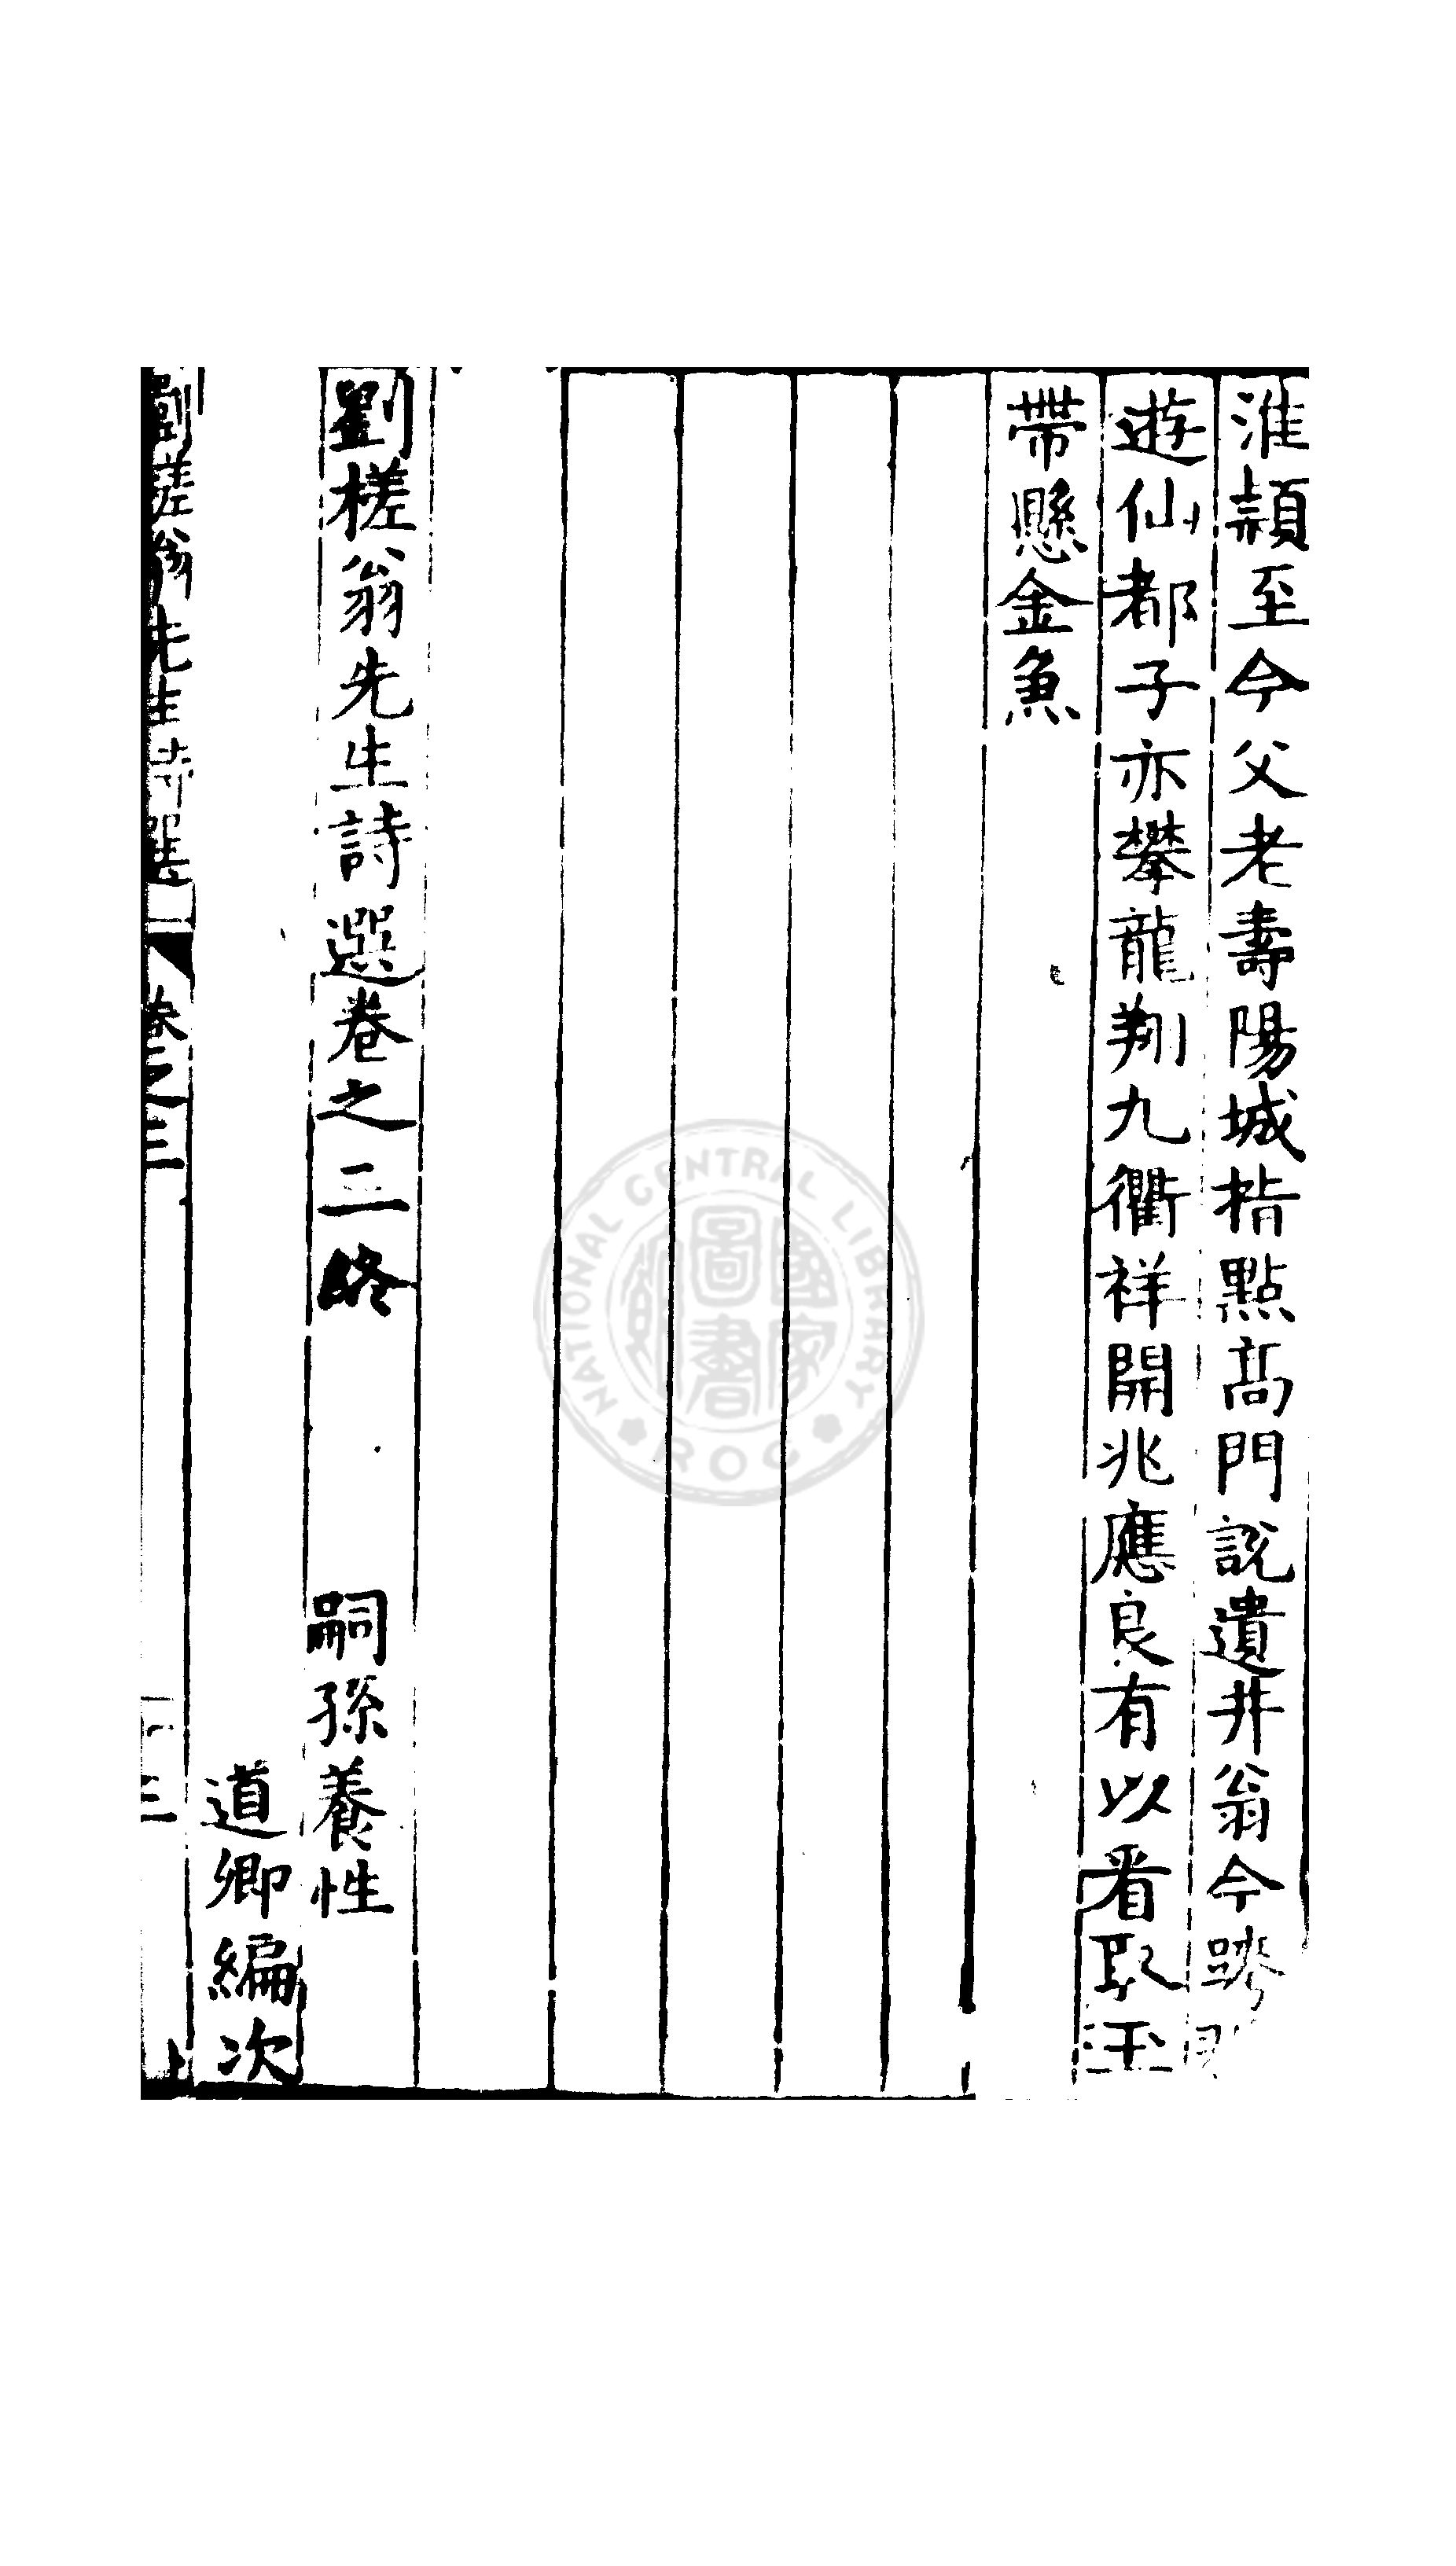 淮頴至今父老壽陽城指點高門說遺井翁今
遊仙都子亦攀龍翔九衢祥開兆應良有以看取玉
帶懸金魚
劉槎翁先生詩選卷之二終
嗣孫養性
道卿編次
劉槎翁先生詩選
卷之三
NATIONAL CENTRAL LIBRARY
國家圖書館
ROC